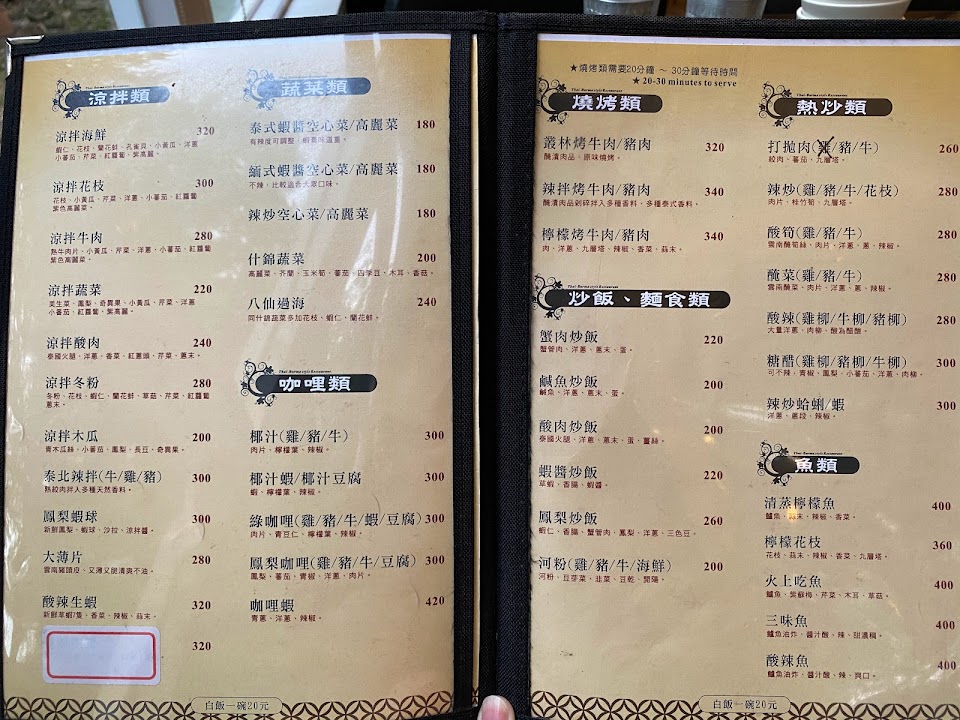 Thai-Burma style Restaurant
涼拌類
涼拌海鮮 320
蝦仁、花枝、蘭花蚌、孔雀貝、小黃瓜、洋蔥
小蕃茄、芹菜、紅蘿蔔、紫高麗。
涼拌花枝 300
花枝、小黃瓜、芹菜、洋蔥、小蕃茄、紅蘿蔔
紫色高麗菜。
涼拌牛肉 280
熟牛肉片、小黃瓜、芹菜、洋蔥、小蕃茄、紅蘿蔔
紫色高麗菜。
涼拌蔬菜 220
美生菜、鳳梨、奇異果、小黃瓜、芹菜、洋蔥
小蕃茄、紅蘿蔔、紫高麗。
涼拌酸肉 240
泰國火腿、洋蔥、香菜、紅蔥頭、芹菜、蔥末。
涼拌冬粉 280
冬粉、花枝、蝦仁、蘭花蚌、草菇、芹菜、紅蘿蔔
蔥末。
涼拌木瓜 200
青木瓜絲、小蕃茄、鳳梨、長豆、奇異果。
泰北辣拌(牛/雞/豬) 300
熟絞肉拌入多種天然香料。
鳳梨蝦球 300
新鮮鳳梨、蝦球、沙拉、涼拌醬。
大薄片 280
雲南豬頭皮、又薄又脆清爽不油。
酸辣生蝦 320
新鮮草蝦7隻、香菜、辣椒、蒜末。
320
蔬菜類
泰式蝦醬空心菜/高麗菜 180
有辣度可調整、蝦醬味道重。
緬式蝦醬空心菜/高麗菜 180
不辣、比較適合大眾口味。
辣炒空心菜/高麗菜 180
什錦蔬菜 200
高麗菜、芥蘭、玉米筍、蕃茄、四季豆、木耳、香菇。
八仙過海 240
同什錦蔬菜多加花枝、蝦仁、蘭花蚌。
Thai-Burma style Restaurant
咖哩類
椰汁(雞/豬/牛) 300
肉片、檸檬葉、辣椒。
椰汁蝦/椰汁豆腐 300
蝦、檸檬葉、辣椒。
綠咖哩(雞/豬/牛/蝦/豆腐) 300
肉片、青豆仁、檸檬葉、辣椒。
鳳梨咖哩(雞/豬/牛/豆腐) 300
鳳梨、蕃茄、青椒、洋蔥、肉片。
咖哩蝦 420
青蔥、洋蔥、辣椒。
白飯一碗20元
★燒烤類需要20分鐘 ～ 30分鐘等待時間
★ 20-30 minutes to serve
Thai-Burma style Restaurant
燒烤類
叢林烤牛肉/豬肉 320
醃漬肉品、原味燒烤。
辣拌烤牛肉/豬肉 340
醃漬肉品剁碎拌入多種香料、多種泰式香料。
檸檬烤牛肉/豬肉 340
肉、洋蔥、九層塔、辣椒、香菜、蒜末。
Thai-Burma style Restaurant
炒飯、麵食類
蟹肉炒飯 220
蟹管肉、洋蔥、蔥末、蛋。
鹹魚炒飯 200
鹹魚、洋蔥、蔥末、蛋。
酸肉炒飯 200
泰國火腿、洋蔥、蔥末、蛋、薑絲。
蝦醬炒飯 220
草蝦、香腸、蝦醬。
鳳梨炒飯 260
蝦仁、香腸、蟹管肉、鳳梨、洋蔥、三色豆。
河粉(雞/豬/牛/海鮮) 200
河粉、豆芽菜、韭菜、豆乾、開陽。
Thai-Burma style Restaurant
熱炒類
打拋肉(雞/豬/牛) 260
絞肉、蕃茄、九層塔。
辣炒(雞/豬/牛/花枝) 280
肉片、桂竹筍、九層塔。
酸筍(雞/豬/牛) 280
雲南醃筍絲、肉片、洋蔥、蔥、辣椒。
醃菜(雞/豬/牛) 280
雲南醃菜、肉片、洋蔥、蔥、辣椒。
酸辣(雞柳/牛柳/豬柳) 280
大量洋蔥、肉柳、酸為醋酸。
糖醋(雞柳/豬柳/牛柳) 300
可不辣、青椒、鳳梨、小蕃茄、洋蔥、肉柳。
辣炒蛤蜊/蝦 300
洋蔥、蔥段、辣椒。
Thai-Burma style Restaurant
魚類
清蒸檸檬魚 400
鱸魚、蒜末、辣椒、香菜。
檸檬花枝 360
花枝、蒜末、辣椒、香菜、九層塔。
火上吃魚 400
鱸魚、紫蘇梅、芹菜、木耳、草菇。
三味魚 400
鱸魚油炸、醬汁酸、辣、甜濃稠。
酸辣魚 400
鱸魚油炸、醬汁酸、辣、爽口。
白飯一碗20元